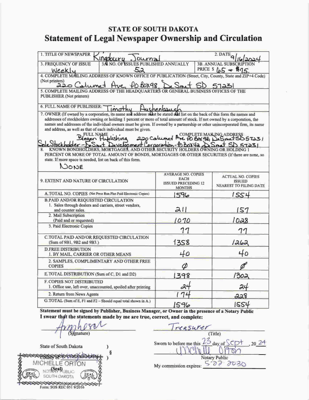 STATE OF SOUTH DAKOTA
Statement of Legal Newspaper Ownership and Circulation
1. TITLE OF NEWSPAPER Kingsbury Journal
2. DATE 9/16/2024
3. FREQUENCY OF ISSUE Weekly
3A. NO. OF ISSUES PUBLISHED ANNUALLY 52
3B. ANNUAL SUBSCRIPTION PRICE
4. COMPLETE MAILING ADDRESS OF KNOWN OFFICE OF PUBLICATION (Street, City, County, State and ZIP+4 Code)
(Not printers)
220 Calumet Ave PO Box 98 De Smet SD 57231
5. COMPLETE MAILING ADDRESS OF THE HEADQUARTERS OR GENERAL BUSINESS OFFICES OF THE
PUBLISHER (Not printers)
6. FULL NAME OF PUBLISHER: Timothy Aughenbaugh
7. OWNER (If owned by a corporation, its name and address must be stated and
addresses of stockholders owning or holding 1 percent or more of total amount of stock. If not owned by a corporation, the
names and addresses of the individual owners must be given. If owned by a partnership or other unincorporated firm, its name
and address, as well as that of each individual must be given.
FULL NAME COMPLETE MAILING ADDRESS
Publishing PO Box 98 De Smet SD 57231
De Smet Development Corporation De Smet SD 57231
8. KNOWN BONDHOLDERS, MORTGAGEES, AND OTHER SECURITY HOLDERS OWNING OR HOLDING 1
PERCENT OR MORE OF TOTAL AMOUNT OF BONDS, MORTGAGES OR OTHER SECURITIES (If there are none, so
state. If more space is needed, list on back of this form.
NONE
9. EXTENT AND NATURE OF CIRCULATION
AVERAGE NO. COPIES EACH ISSUED PRECEDING 12 MONTHS
ACTUAL NO. COPIES ISSUED NEAREST TO FILING DATE
A. TOTAL NO. COPIES 1596 1554
B. PAID AND/OR REQUESTED CIRCULATION
1. Sales through dealers and carriers, street vendors,
and counter sales. 211 157
2. Mail Subscription
(Paid and or requested) 1070 1028
3. Paid Electronic Copies
77 77
C. TOTAL PAID AND/OR REQUESTED CIRCULATION
(Sum of 9B1, 9B2 and 9B3.) 1358 1262
D. FREE DISTRIBUTION
1. BY MAIL, CARRIER OR OTHER MEANS 40 40
2. SAMPLES, COMPLIMENTARY AND OTHER FREE
COPIES Ø Ø
E. TOTAL DISTRIBUTION (Sum of C, D1 and D2) 1398 1302
F. COPIES NOT DISTRIBUTED
1. Office use, left over, unaccounted, spoiled after printing 24 24
2. Return from News Agents 174 228
G. TOTAL (Sum of E, F1 and F2 – Should equal total shown in A.) 1596 1554
Statement must be signed by Publisher, Business Manager, or Owner in the presence of a Notary Public
I swear that the statements made by me are true, correct, and complete:
Treasurer
(Signature) (Title)
State of South Dakota )
Sworn to before me this 23 day of Sept 2024
Michelle Orton
Notary Public
My commission expires:
MICHELLE ORTON
(Seal)
NOTARY PUBLIC
SOUTH DAKOTA
SEAL SEAL